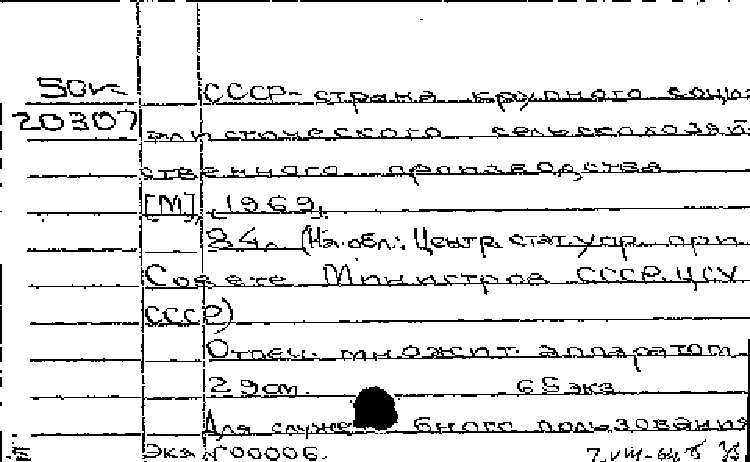 50к СССР-страна крупного социа
20307 листического сельскохозяй
ственного производства
[М], 1969.
84. (На обл.: Центр. стат. упр. при
Совете Министров СССР. ЦСУ
СССР)
Отпеч. множит. аппаратом
29см. 65экз
Для служебного пользования
Экз №00006.